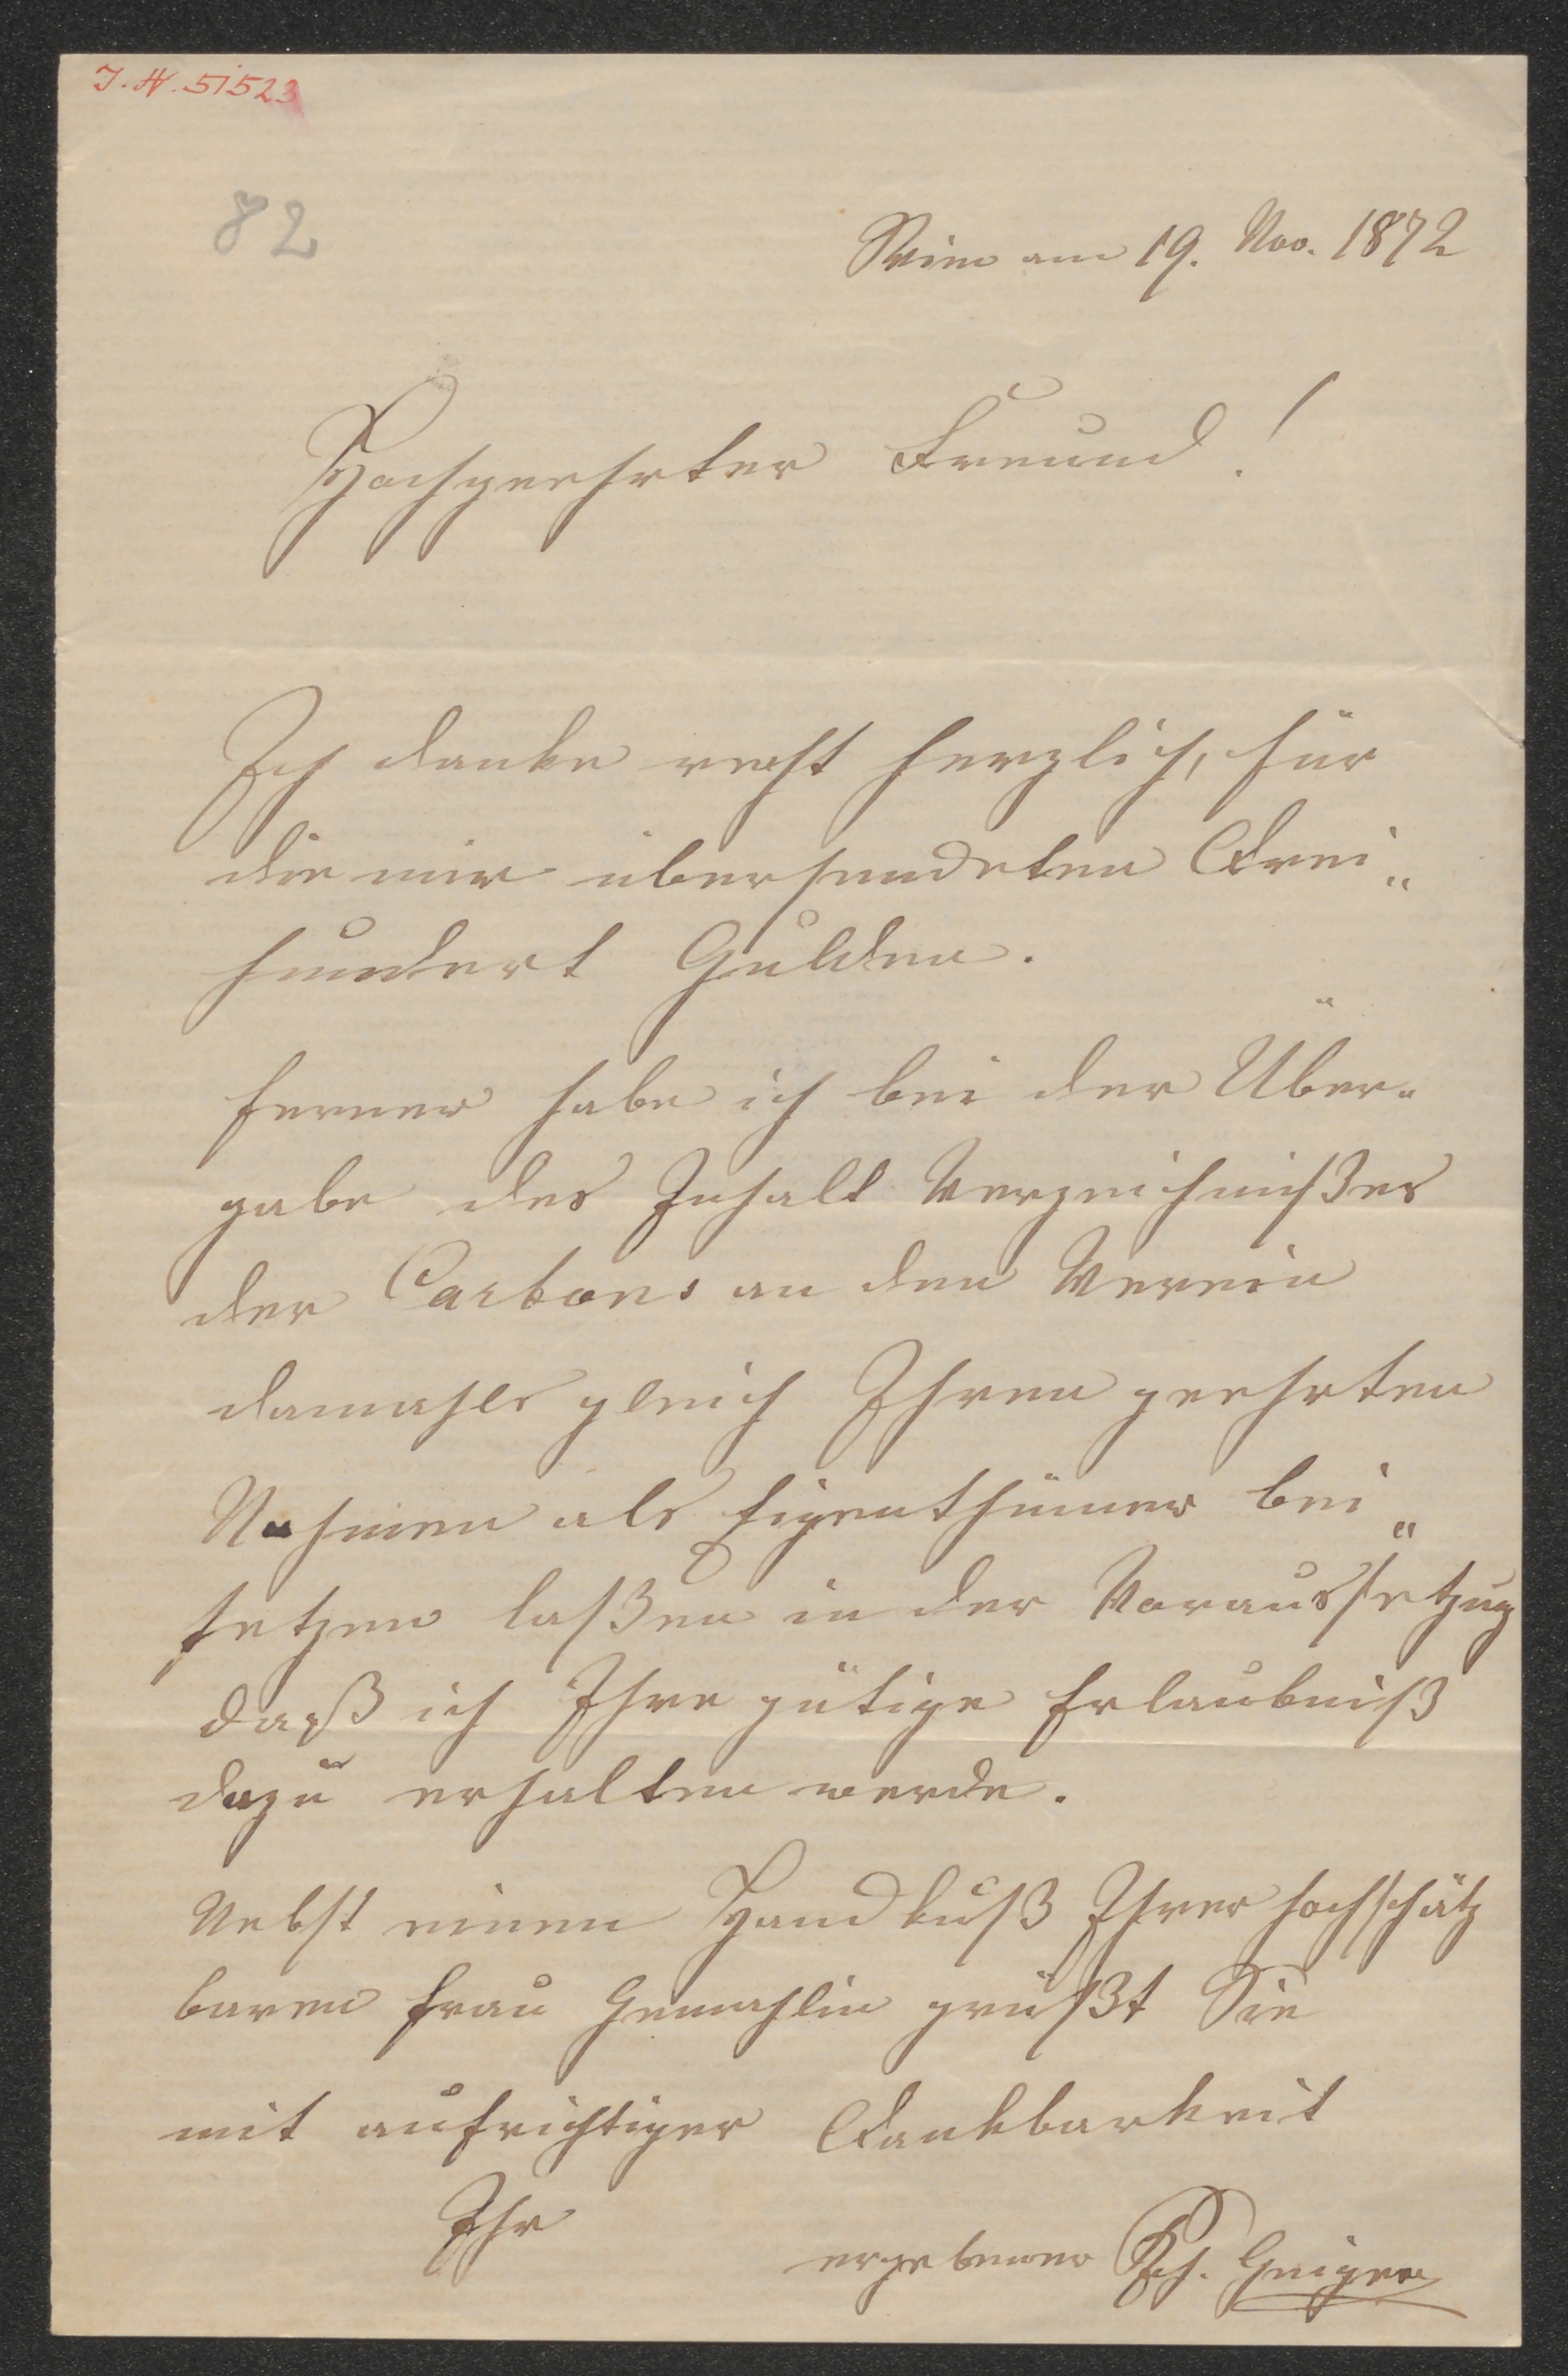 I. N. 51523
82
Wien am 19. Nov. 1872
Hochgeehrter Freund!
Ich danke recht herzlich, für
die mir übersendeten Drei„
hundert Gulden.
ferner habe ich bei der Über„
gabe des Inhalt Verzeichnißes
der Cartons an den Verein
damahls gleich Ihren geehrten
Nahmen als Eigenthümer bei„
setzen laßen in der Voraussetzug
daß ich Ihre gütige Erlaubniß
dazu erhalten werde.
Nebst einen Handkuß Ihrer hochschätz
baren Frau Gemahlin grüßt Sie
mit aufrichtiger Dankbarkeit
Ihr
ergebener Geiger